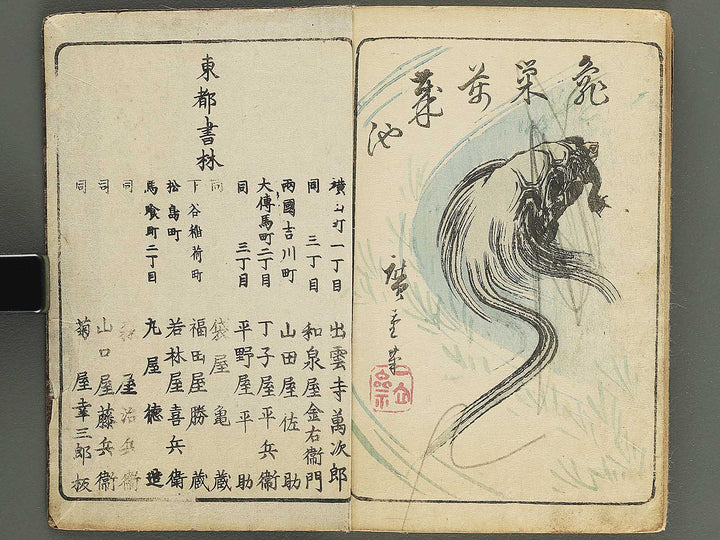 龜巣
池
廣重筆
東都書林
横山町一丁目 出雲寺萬次郎
同 三丁目 和泉屋金右衞門
兩國吉川町 山田屋佐助
大傳馬町二丁目 丁子屋平兵衞
同 三丁目 平野屋平助
同 袋屋亀蔵
下谷稲荷町 福田屋勝蔵
松島町 若林屋喜兵衞
馬喰町二丁目 丸屋徳造
同 森屋治兵衞
同 山口屋藤兵衞
同 菊屋幸三郎板